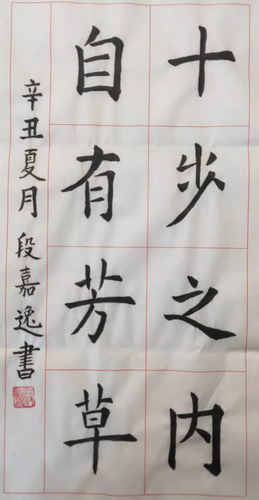 十步之内
自有芳草
辛丑夏月段嘉逸書